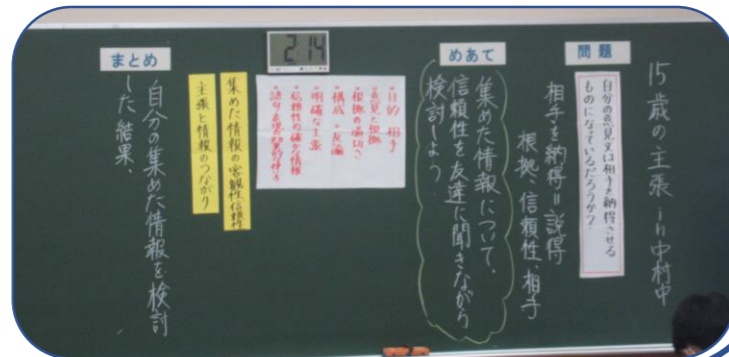 15歳の主張 in 中村中
問題
自分の意見文は相手を納得させる
ものになっているだろうか?
相手を納得=説得
根拠、信頼性、相手
めあて
集めた情報について、
信頼性を友達に聞きながら
検討しよう
2:14
・目的 相手
・意見と根拠
・根拠の適切さ
・構成 ・反論
・明確な主張
・信頼性の確かな情報
・語句・表現の効果的な使い方
集めた情報の客観性、信頼性
主張と情報のつながり
まとめ
自分の集めた情報を検討
した結果、